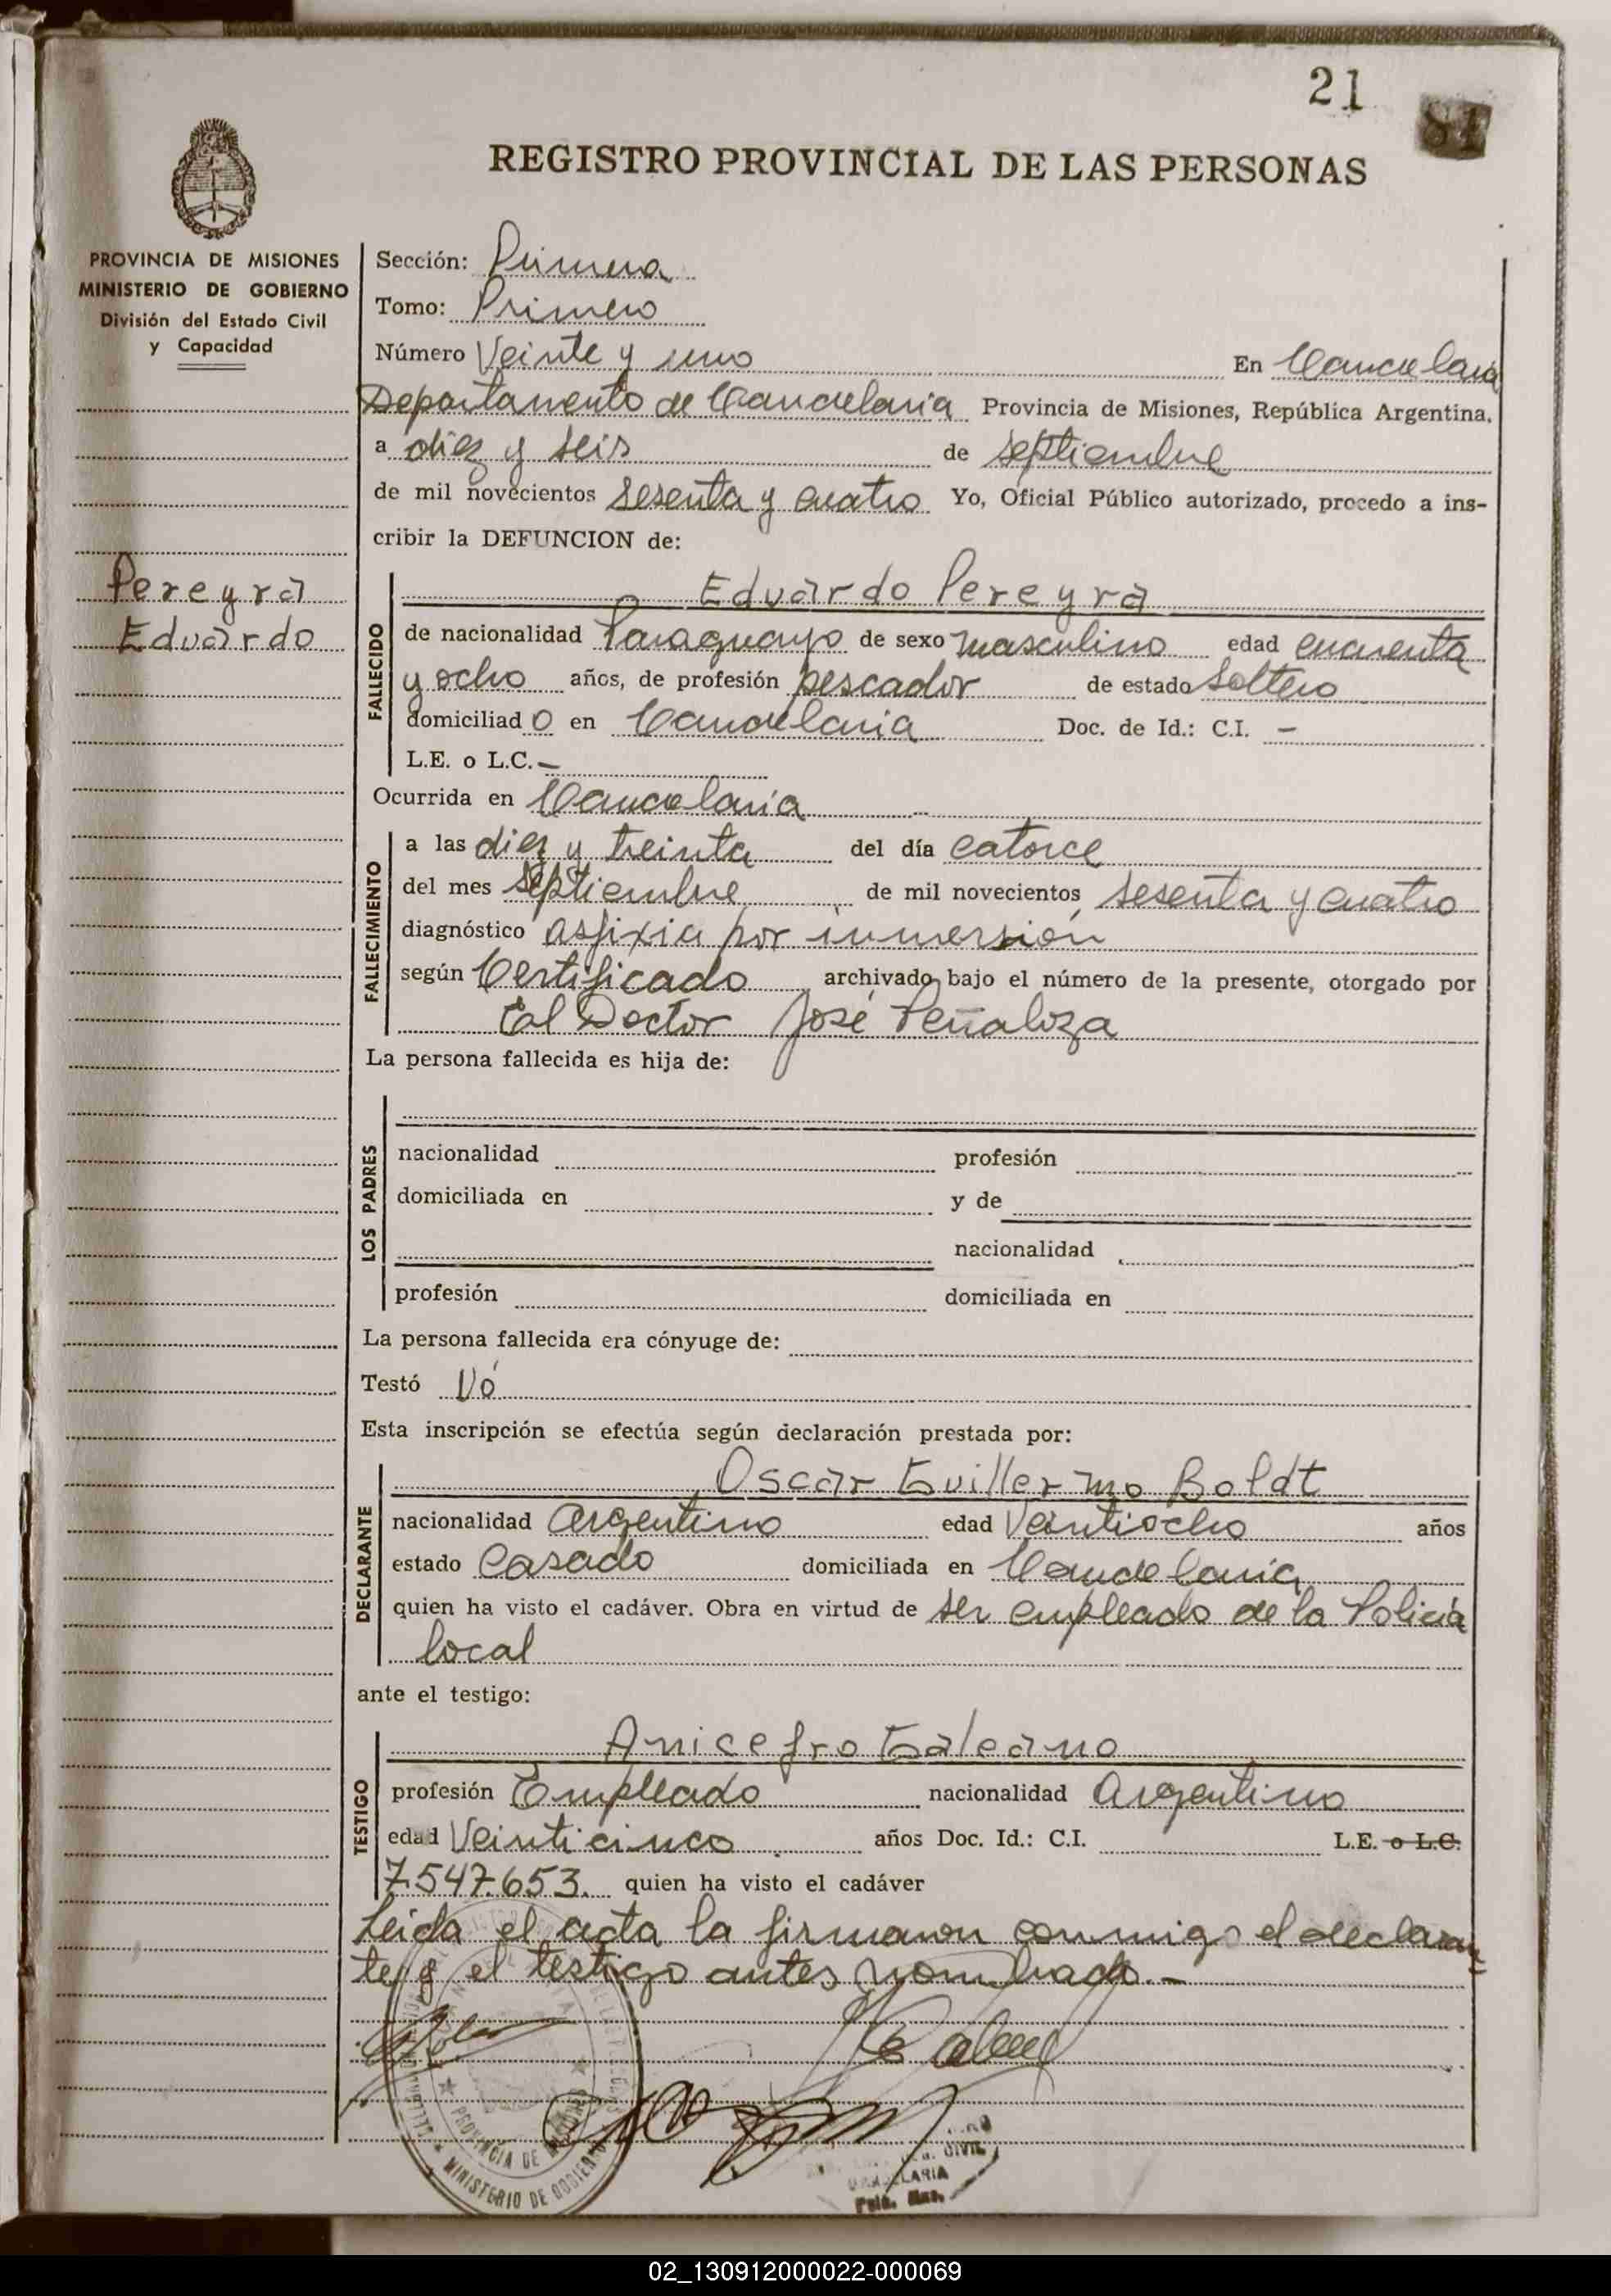 21
REGISTRO PROVINCIAL DE LAS PERSONAS
PROVINCIA DE MISIONES
MINISTERIO DE GOBIERNO
División del Estado Civil
y Capacidad
Pereyra
Eduardo
Sección: Primera
Tomo: Primero
Número Veinte y uno En Candelaria
Departamento de Candelaria Provincia de Misiones, República Argentina,
a diez y seis de septiembre
de mil novecientos sesenta y cuatro Yo, Oficial Público autorizado, procedo a ins-
cribir la DEFUNCION de:
FALLECIDO
Eduardo Pereyra
de nacionalidad Paraguayo de sexo masculino edad cuarenta
y ocho años, de profesión pescador de estado soltero
domiciliado en Candelaria Doc. de Id.: C.I. —
L.E. o L.C. —
Ocurrida en Candelaria
FALLECIMIENTO
a las diez y treinta del día catorce
del mes septiembre de mil novecientos sesenta y cuatro
diagnóstico asfixia por inmersión
según Certificado archivado bajo el número de la presente, otorgado por
El Doctor José Peñaloza
La persona fallecida es hija de:
LOS PADRES
nacionalidad profesión
domiciliada en y de
nacionalidad
profesión domiciliada en
La persona fallecida era cónyuge de:
Testó Nó
Esta inscripción se efectúa según declaración prestada por:
DECLARANTE
Oscar Guillermo Boldt
nacionalidad argentino edad Veintiocho años
estado Casado domiciliada en Candelaria
quien ha visto el cadáver. Obra en virtud de ser empleado de la Policía
local
ante el testigo:
TESTIGO
Anicefro Galeano
profesión Empleado nacionalidad Argentino
edad Veinticinco años Doc. Id.: C.I. L.E. o L.C.
7.547.653. quien ha visto el cadáver
Leida el acta la firmaron conmigo el declaran
te y el testigo antes nombrado.—
PROVINCIA DE
MINISTERIO DE GOBIERNO
CIVIL
Pcia. Mnes.
02_130912000022-000069